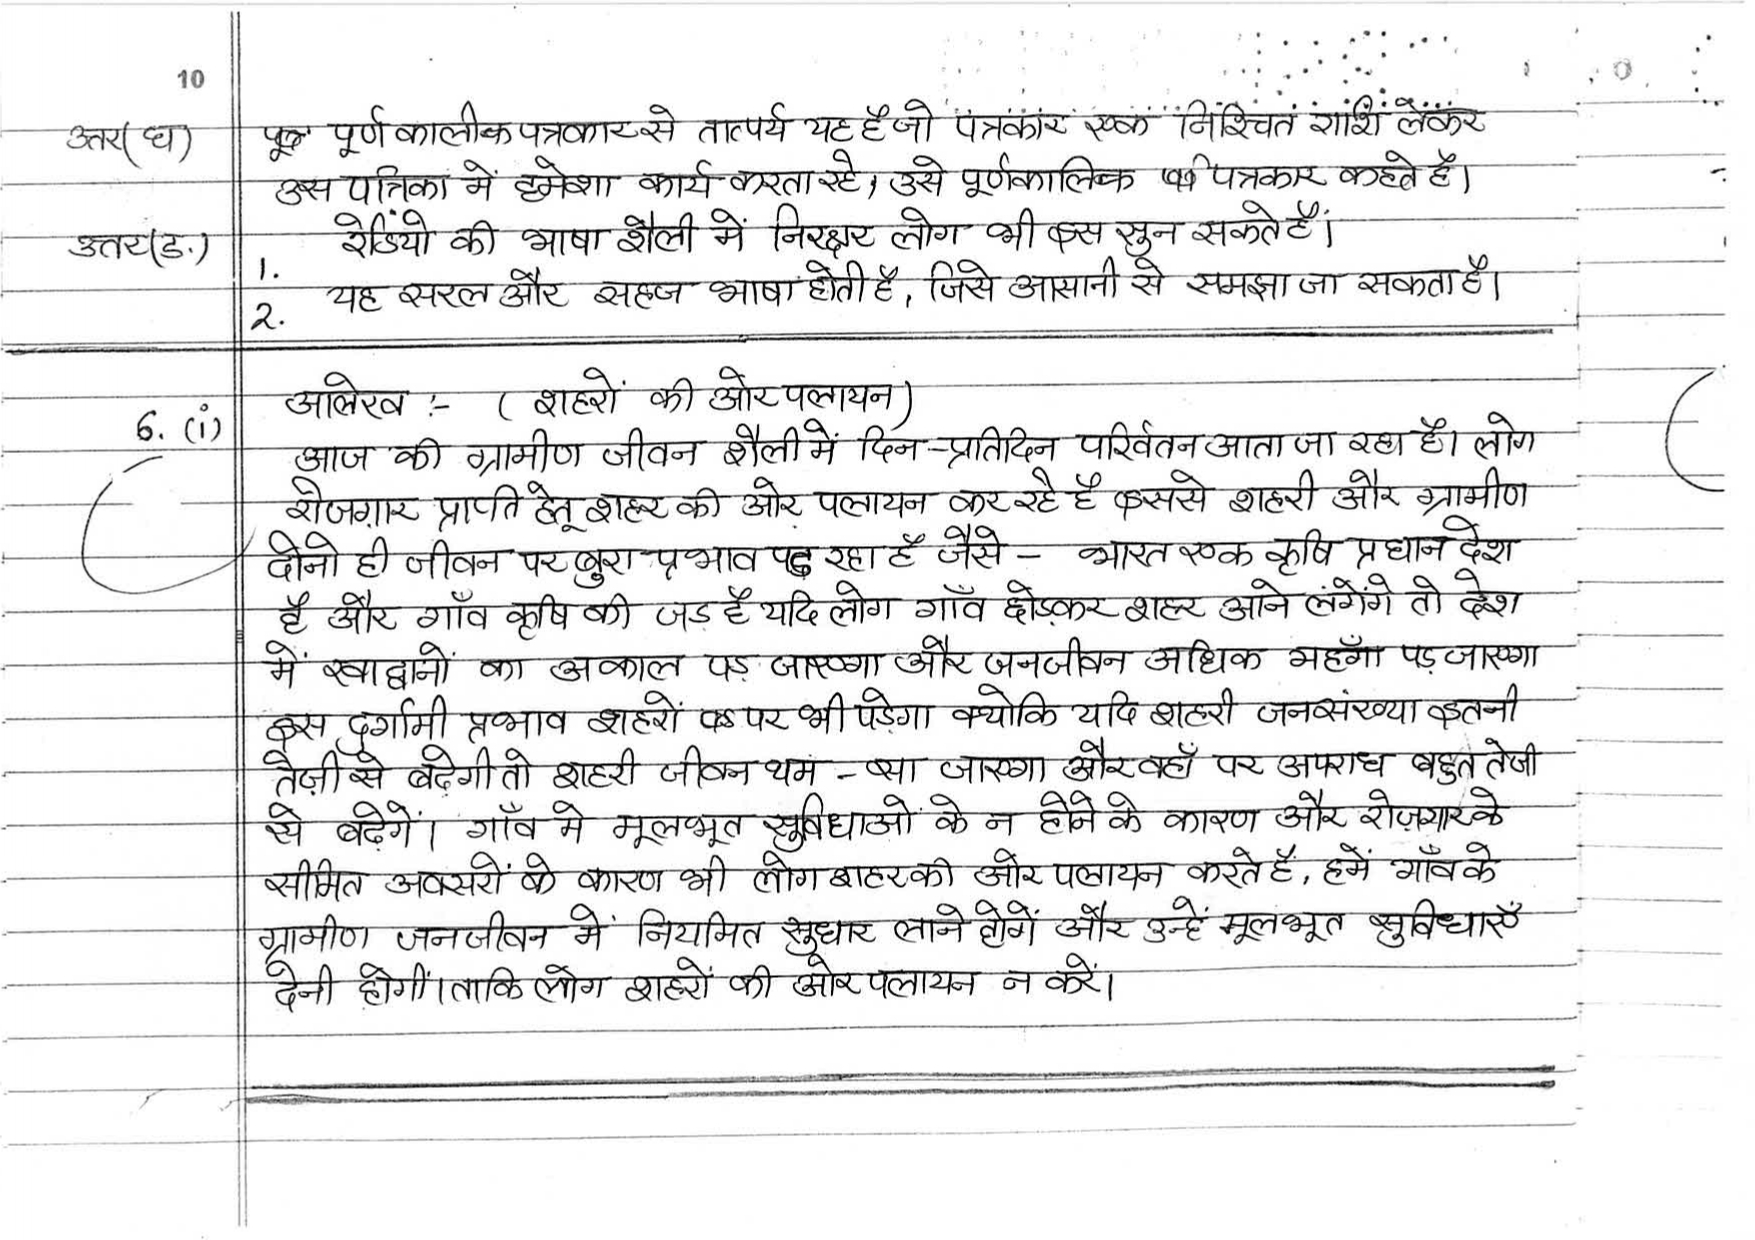 10
उत्तर(घ) पूर्ण कालीक पत्रकार से तात्पर्य यह है जो पत्रकार एक निश्चित राशि लेकर
उस पत्रिका में हमेशा कार्य करता रहे, उसे पूर्णकालिक पत्रकार कहते है।
उत्तर(ड.) 1. रेडियो की भाषा शैली में निरक्षर लोग भी इस सुन सकते हैं।
2. यह सरल और सहज भाषा होती है, जिसे आसानी से समझा जा सकता है।
6. (i) आलेख :- ( शहरों की ओर पलायन)
आज की ग्रामीण जीवन शैली में दिन-प्रतिदिन परिर्वतन आता जा रहा है। लोग
रोजग़ार प्राप्ति हेतू शहर की ओर पलायन कर रहे है इससे शहरी और ग्रामीण
दोनो ही जीवन पर बुरा प्रभाव पड़ रहा है जैसे - भारत एक कृषि प्रधान देश
है और गाँव कृषि की जड़ है यदि लोग गाँव छोड़कर शहर आने लगेंगे तो देश
में खाद्वानों का अकाल पड़ जाएगा और जनजीवन अधिक महँगा पड़ जाएगा
इस दुर्गामी प्रभाव शहरों पर भी पड़ेगा क्योकि यदि शहरी जनसंख्या इतनी
तेज़ी से बढ़ेगी तो शहरी जीवन थम - सा जाएगा और वहाँ पर अपराध बहुत तेजी
से बढ़ेगें। गाँव मे मूलभूत सुविधाओं के न होने के कारण और रोज़गार के
सीमित अवसरों के कारण भी लोग शहर की ओर पलायन करते हैं, हमें गाँव के
ग्रामीण जनजीवन में नियमित सुधार लाने होगें और उन्हें मूलभूत सुविधाएँ
देनी होगीं। ताकि लोग शहरों की ओर पलायन न करें।